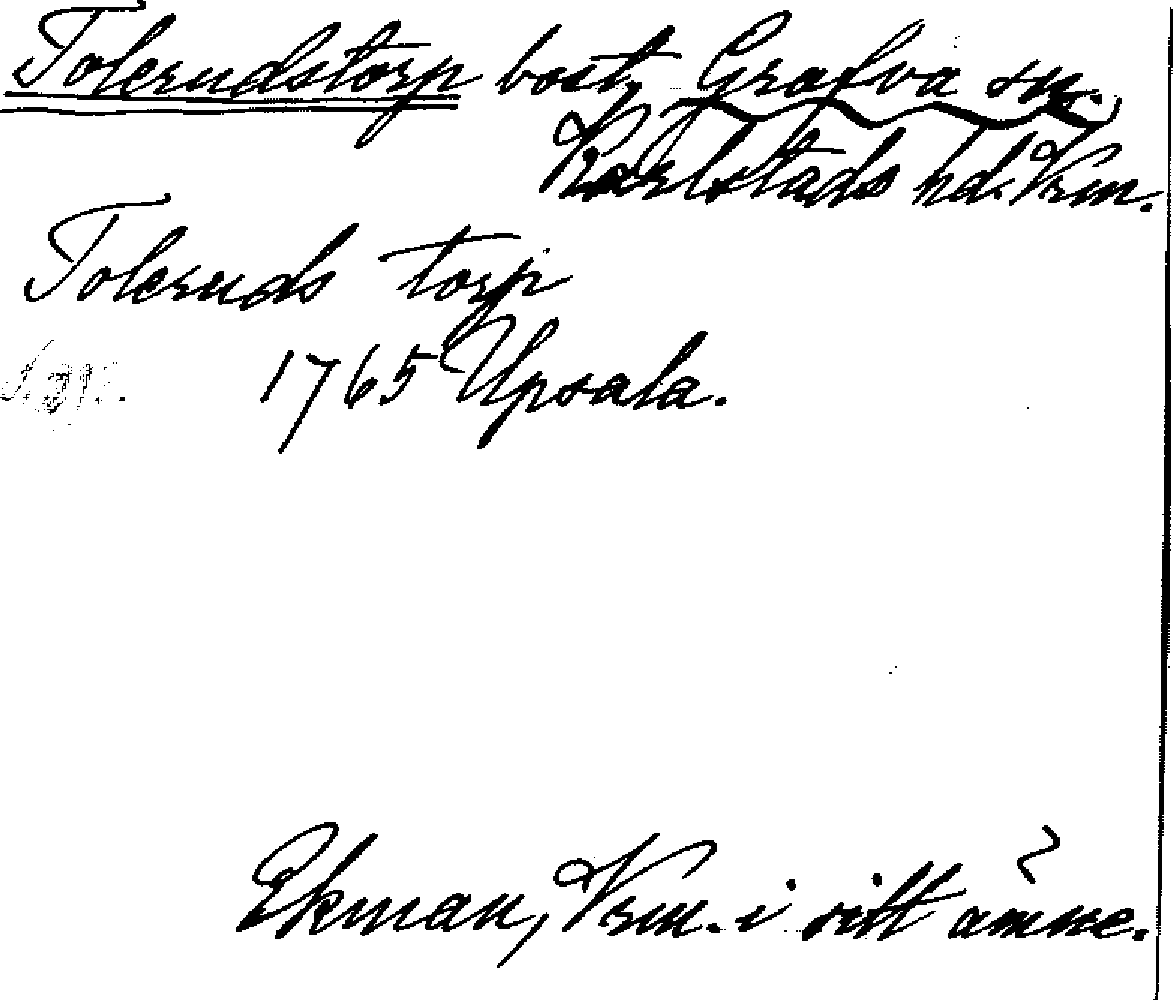 Tolerudstorp bost, Grafva sn.
Karlstads hd. Vrm.
Toleruds torp
1765 Upsala.
Ekman, Vrm. i sitt ämne.